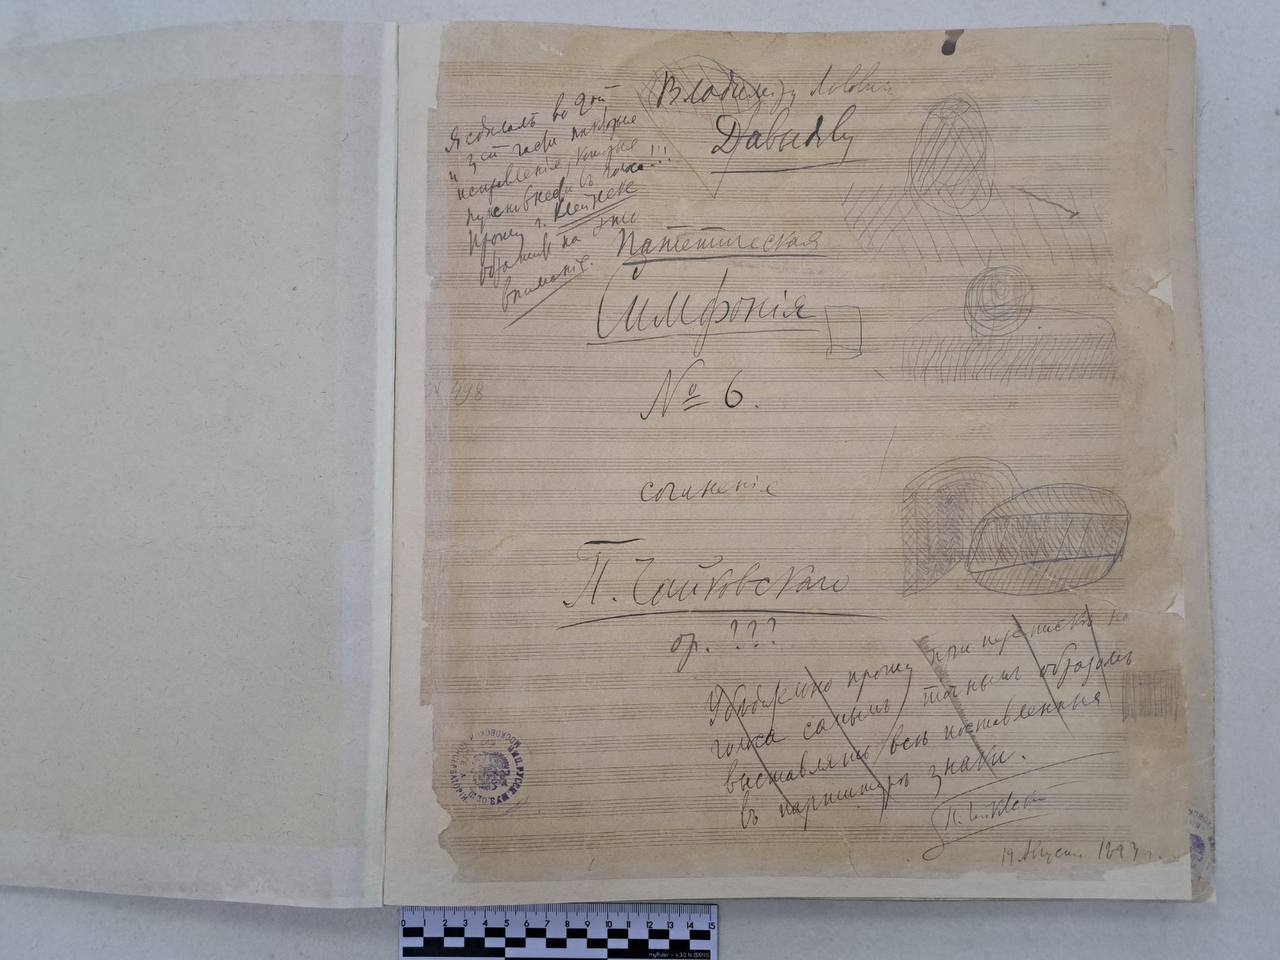 Владиміру Львовичу
Давыдову
Я сдѣлалъ во 2ой
и 3ей части некоторые
исправленія, которые
нужно внести въ голоса!!!
Прошу г. Клейнеке
обратить на это
вниманіе.
Патетическая
Симфонія
№ 6.
498
сочиненіе
П. Чайковскаго
op. ???
Убѣдительно прошу при перепискѣ на
голоса самымъ точнымъ образомъ
выставлять всѣ поставленныя
въ партитурѣ знаки.
П. Чайковскій
19 Августа 1893 г.
0 1 2 3 4 5 6 7 8 9 10 11 12 13 14 15